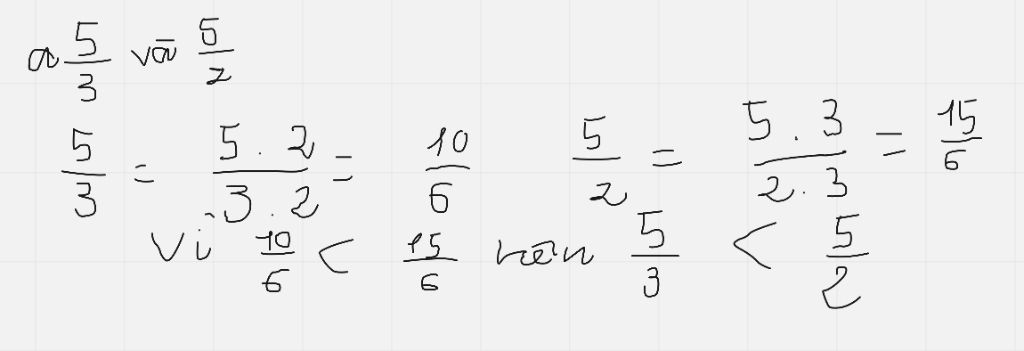 a 5/3 và 5/2
5/3 = 5.2/3.2 = 10/6 5/2 = 5.3/2.3 = 15/6
Vì 10/6 < 15/6 nên 5/3 < 5/2